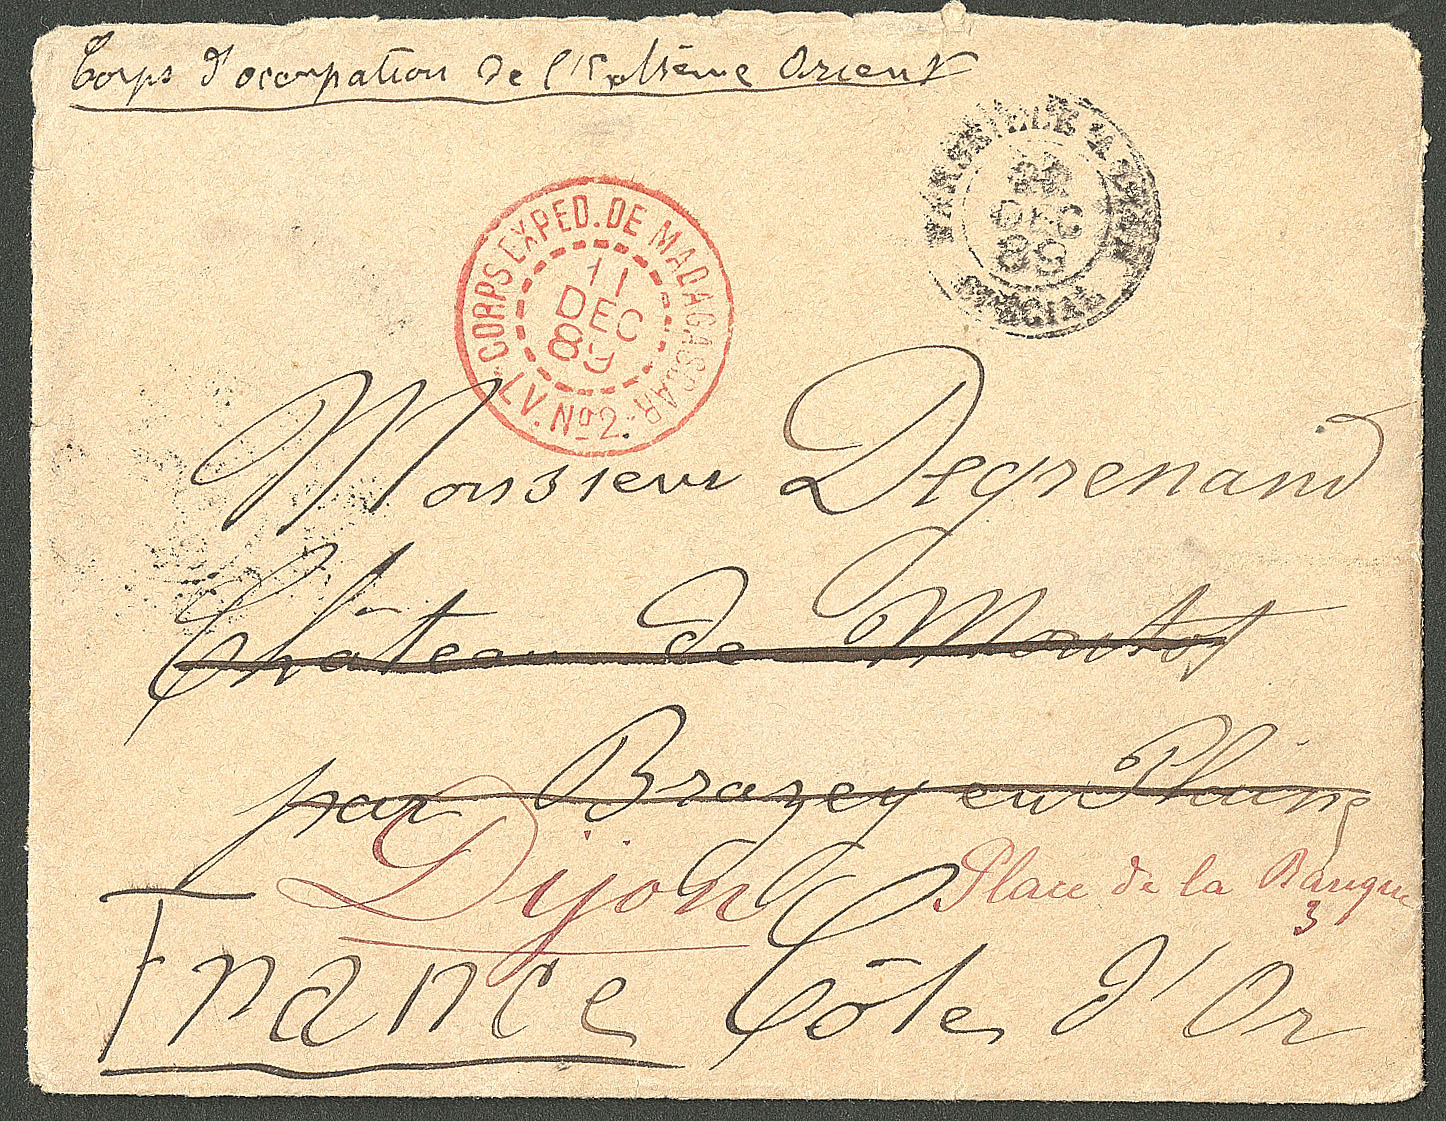 Corps d'occupation de l'Extrême Orient
CORPS EXPED. DE MADAGASCAR
11
DEC
89
LV. No2.
MARSEILLE A LYON
DEC
89
SPECIAL
Monsieur Degrenand
Château de Montot
par Brazey en Plaine
Dijon Place de la Banque
3
France Côte d'Or